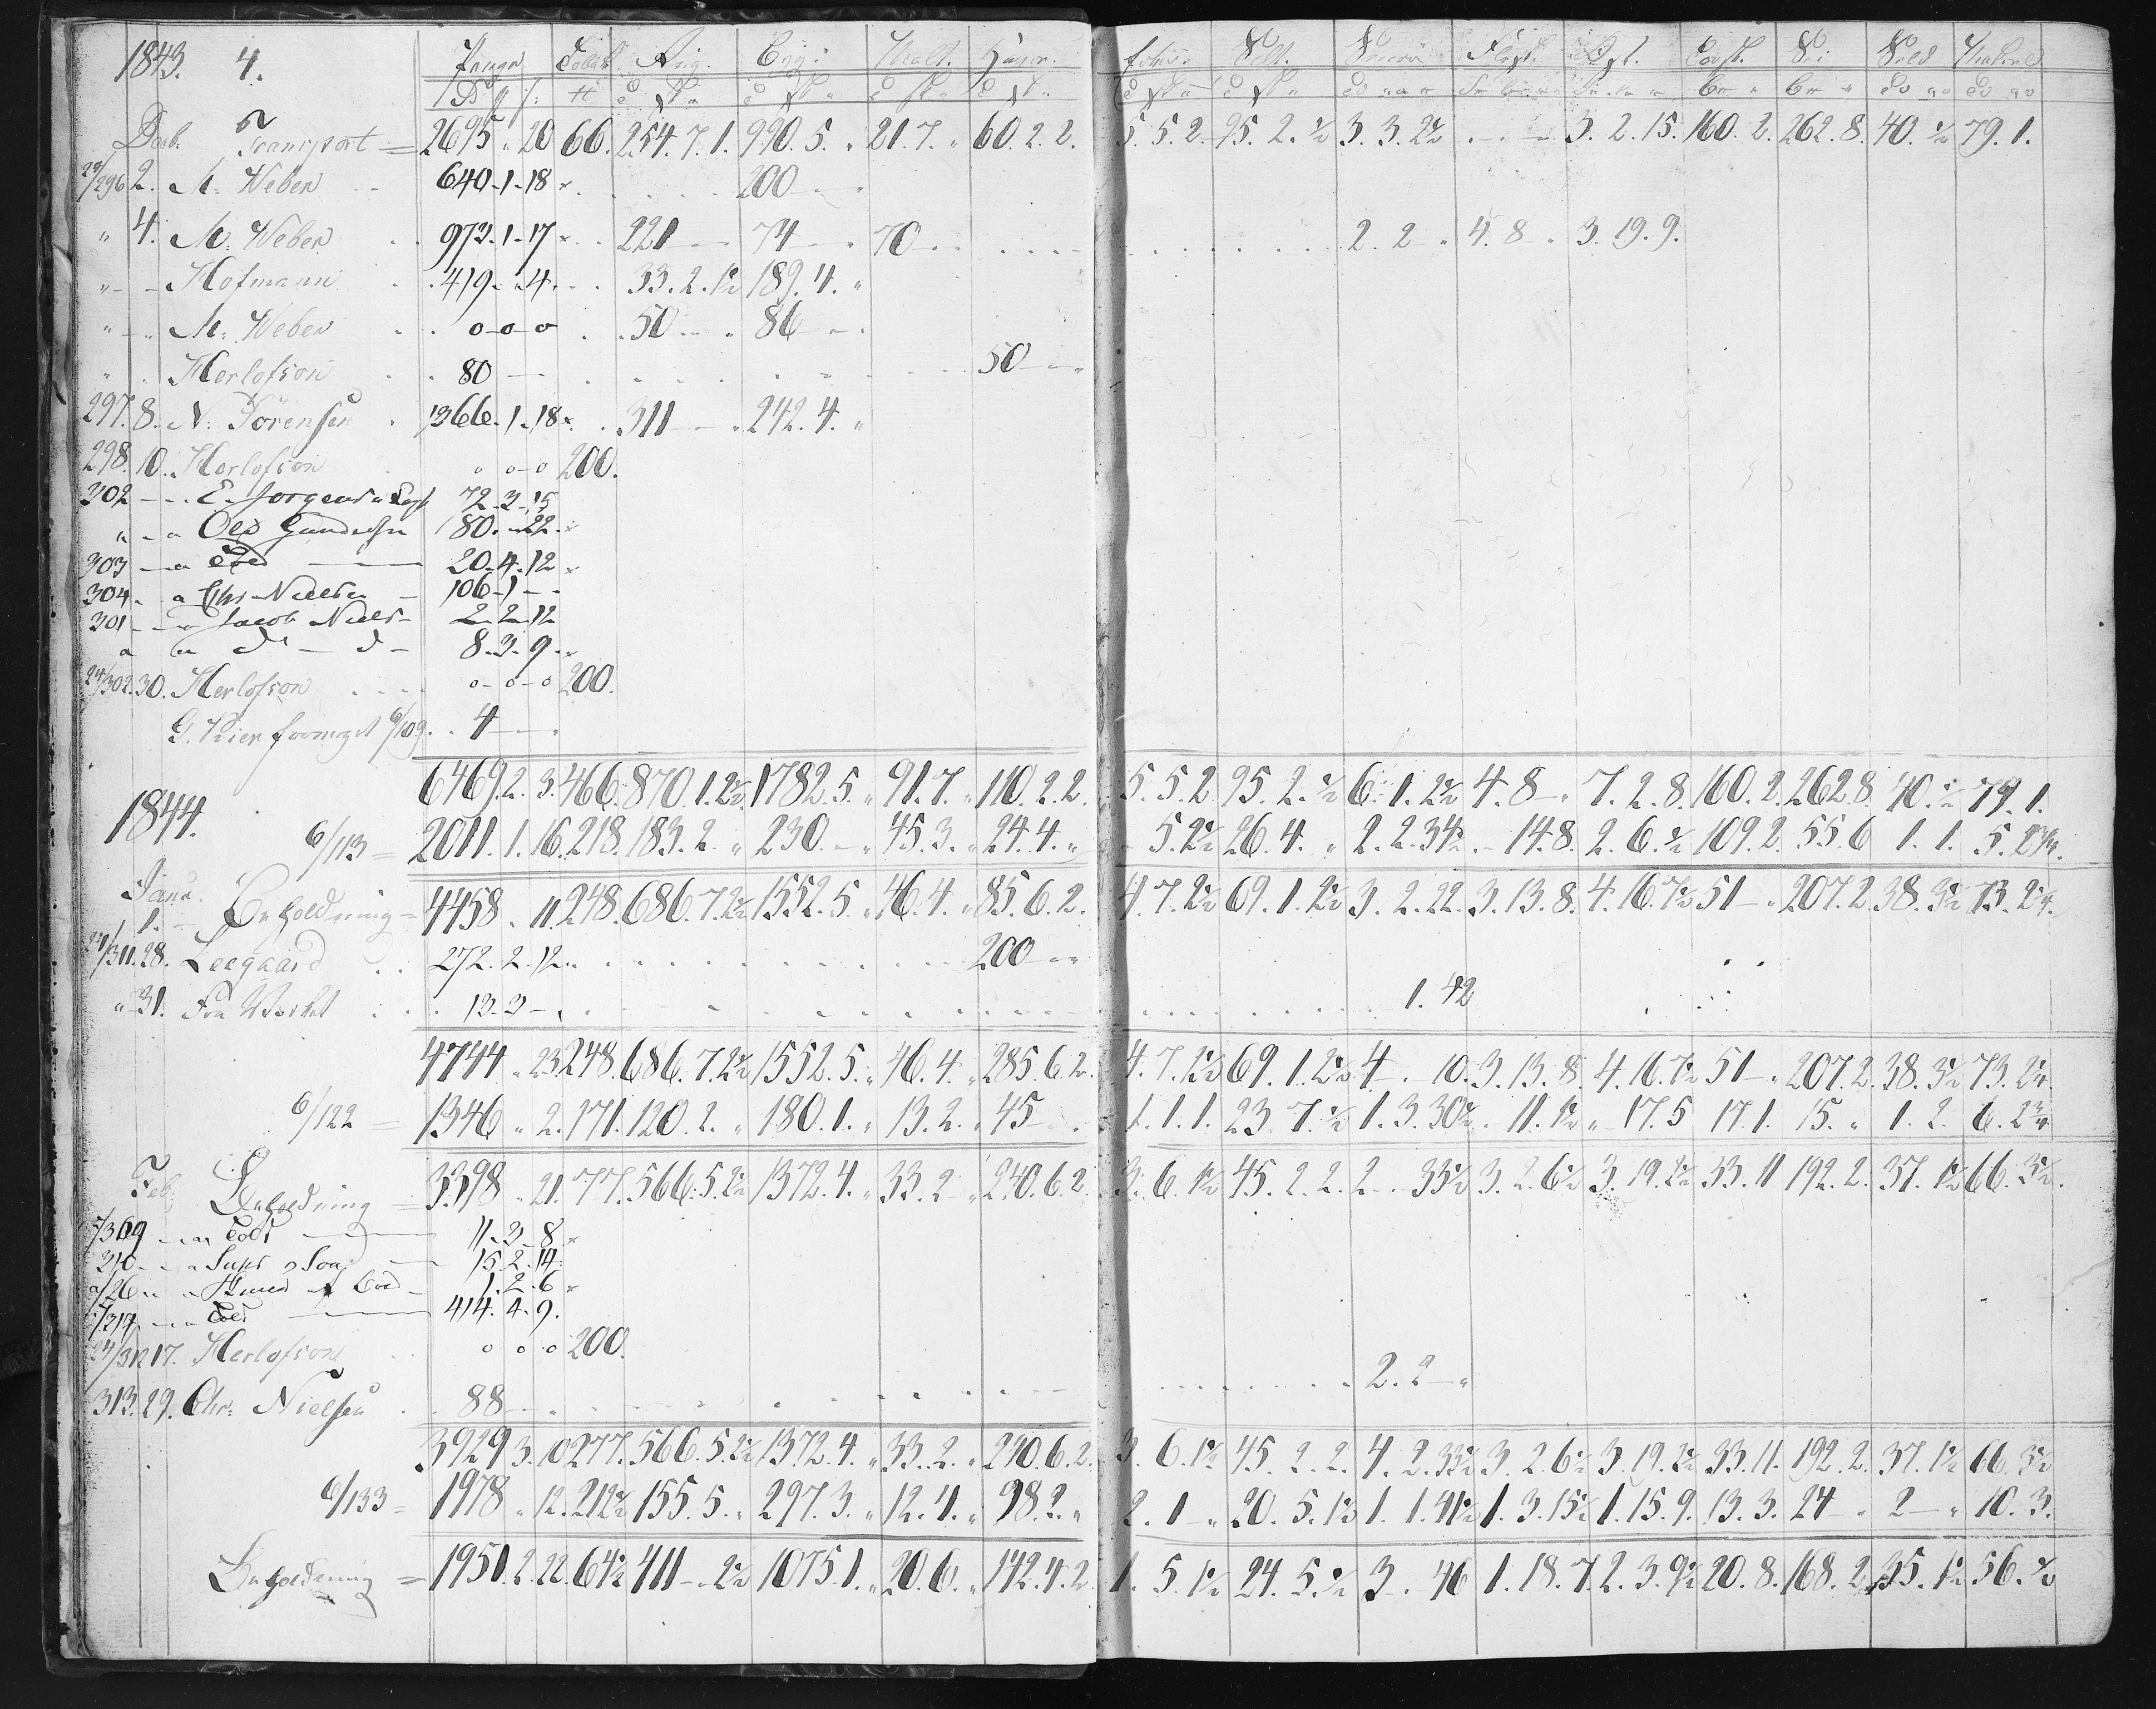 1843. 4. Penge Tobak Rug. Byg: Malt. Havre. Salt. Smör Flesk. Ost. Torsk. Sei Sild Makrel
Decb. Transport = 2695 " 20 66. 254. 7. 1. 990. 5. " 21. 7. " 60. 2. 2. 5. 5. 2. 95. 2. ½ 3. 3. 2½ 3. 2. 15. 160. 2. 262. 8. 40. ½ 79. 1.
24/296 2. M. Weber 640-1-18 200
" 4. M. Weber 973-1-17 221 74 70 2. 2 " 4. 8 " 3. 19. 9.
" - Hofmann 419-"-4 33. 2. 1½ 189. 4. "
" - M. Weber o-o-o 50 86
" Herlofson 80 50
297. 8. N. Sörensen 1366-1-18 311 242. 4. "
298. 10. Herlofson o o-o 200.
302 E. Jorgens 72-3-15
" - " Ole Gundersen 180-"-22
303 - " Told 20-4-12
304 " Chr. Nielsen 106-1-
301 - Jacob Niels- 2-2-12
" " do - d- 8-3-9
24/302. 30. Herlofson o-o-o 200.
G. Kier 6/109. 4
6469. 2. 3. 466. 870. 1. 2½ 1782. 5. " 91. 7. " 110. 2. 2. 5. 5. 2. 95. 2. ½ 6. 1. 2½ 4. 8 " 7. 2. 8. 160. 2. 262. 8. 40. ½ 79. 1.
1844. 6/113 = 2011. 1. 16. 218. 183. 2. " 230. - " 45. 3. " 24. 4. " 5. 2½ 26. 4. " 2. 2. 34½ 14. 8. 2. 6. ½ 109. 2. 55. 6 1. 1. 5. 2¾.
Janu. 1. Beholdning = 4458 " 11. 248. 686. 7. 2½ 1552. 5. " 46. 4. " 85. 6. 2. 4. 7. 2½ 69. 1. 2½ 3. 2. 22. 3. 13. 8. 4. 16. 7½ 51 - " 207. 2. 38. 3½ 73. 2¼.
24/311. 28. Leegaard 272. 2. 12. 200
" 31. Fra Værket 13-3- 1. 42
4744 " 23. 248. 686. 7. 2½ 1552. 5. " 46. 4. " 285. 6. 2. 4. 7. 2½ 69. 1. 2½ 4 - 10. 3. 13. 8. 4. 16. 7½ 51 - " 207. 2. 38. 3½ 73. 2¼.
6/122 = 1346 " 2. 171. 120. 2. " 180. 1. " 13. 2. " 45 1. 1. 1. 23. 7. ½ 1. 3. 30½ 11. 1½ " 17. 5 17. 1. 15. " 1. 2. 6. 2¾
Feb. Beholdning = 3398 " 21. 77. 566. 5. 2½ 1372. 4. " 33. 2 - " 240. 6. 2. 3. 6. 1½ 45. 2. 2. 2 - 33½ 3. 2. 6½ 3. 19. 2½ 33. 11 192. 2. 37. 1½ 66. 3½.
/309 Told 11-3-8
310 15. 2. 14.
/26 1-2-6
/317 Told 414. 4. 9.
24/312 17. Herlofson o o o 200.
313. 29. Chr. Nielsen 88 2. 2 - "
3929. 3. 10 277. 566. 5. 2½ 1372. 4. " 33. 2. " 240. 6. 2. 3. 6. 1½ 45. 2. 2. 4. 2. 33½ 3. 2. 6½ 3. 19. 2½ 33. 11. 192. 2. 37. 1½ 66. 3½
6/133 = 1978 " 12. 212½ 155. 5. " 297. 3. " 12. 4. " 98. 2. " 2. 1 - " 20. 5. 1½ 1. 1. 41½ 1. 3. 15½ 1. 15. 9. 13. 3. 24 - " 2 - " 10. 3.
Beholdning = 1951. 2. 22. 64½ 411 - " 2½ 1075. 1. " 20. 6. " 142. 4. 2. 1. 5. 1½ 24. 5. ½ 3 . 46 1. 18. 7. 2. 3. 9½ 20. 8. 168. 2. 35. 1½ 56. ½